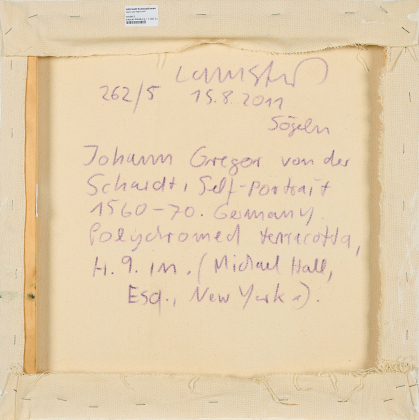 262/5 15.8.2011
Sögeln
Johann Gregor von der
Schardt, Self-Portrait
1560-70. Germany.
Polychromed terracotta,
H. 9. in. (Michael Hall,
Esq., New York).